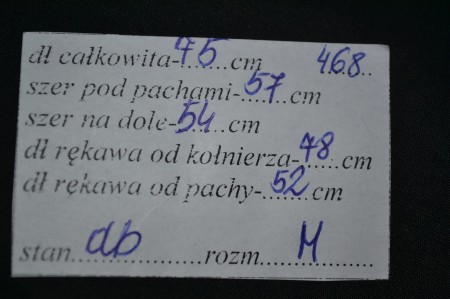 dł całkowita-75......cm 468
szer pod pachami-57....cm
szer na dole-54......cm
dł rękawa od kołnierza-78.....cm
dł rękawa od pachy-52......cm
stan....db..............rozm....M...........